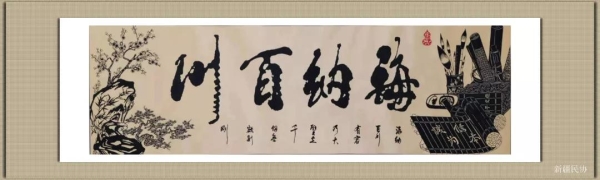 海纳百川
海纳百川有容乃大壁立千仞无欲则刚
诚信
为本
新疆民协